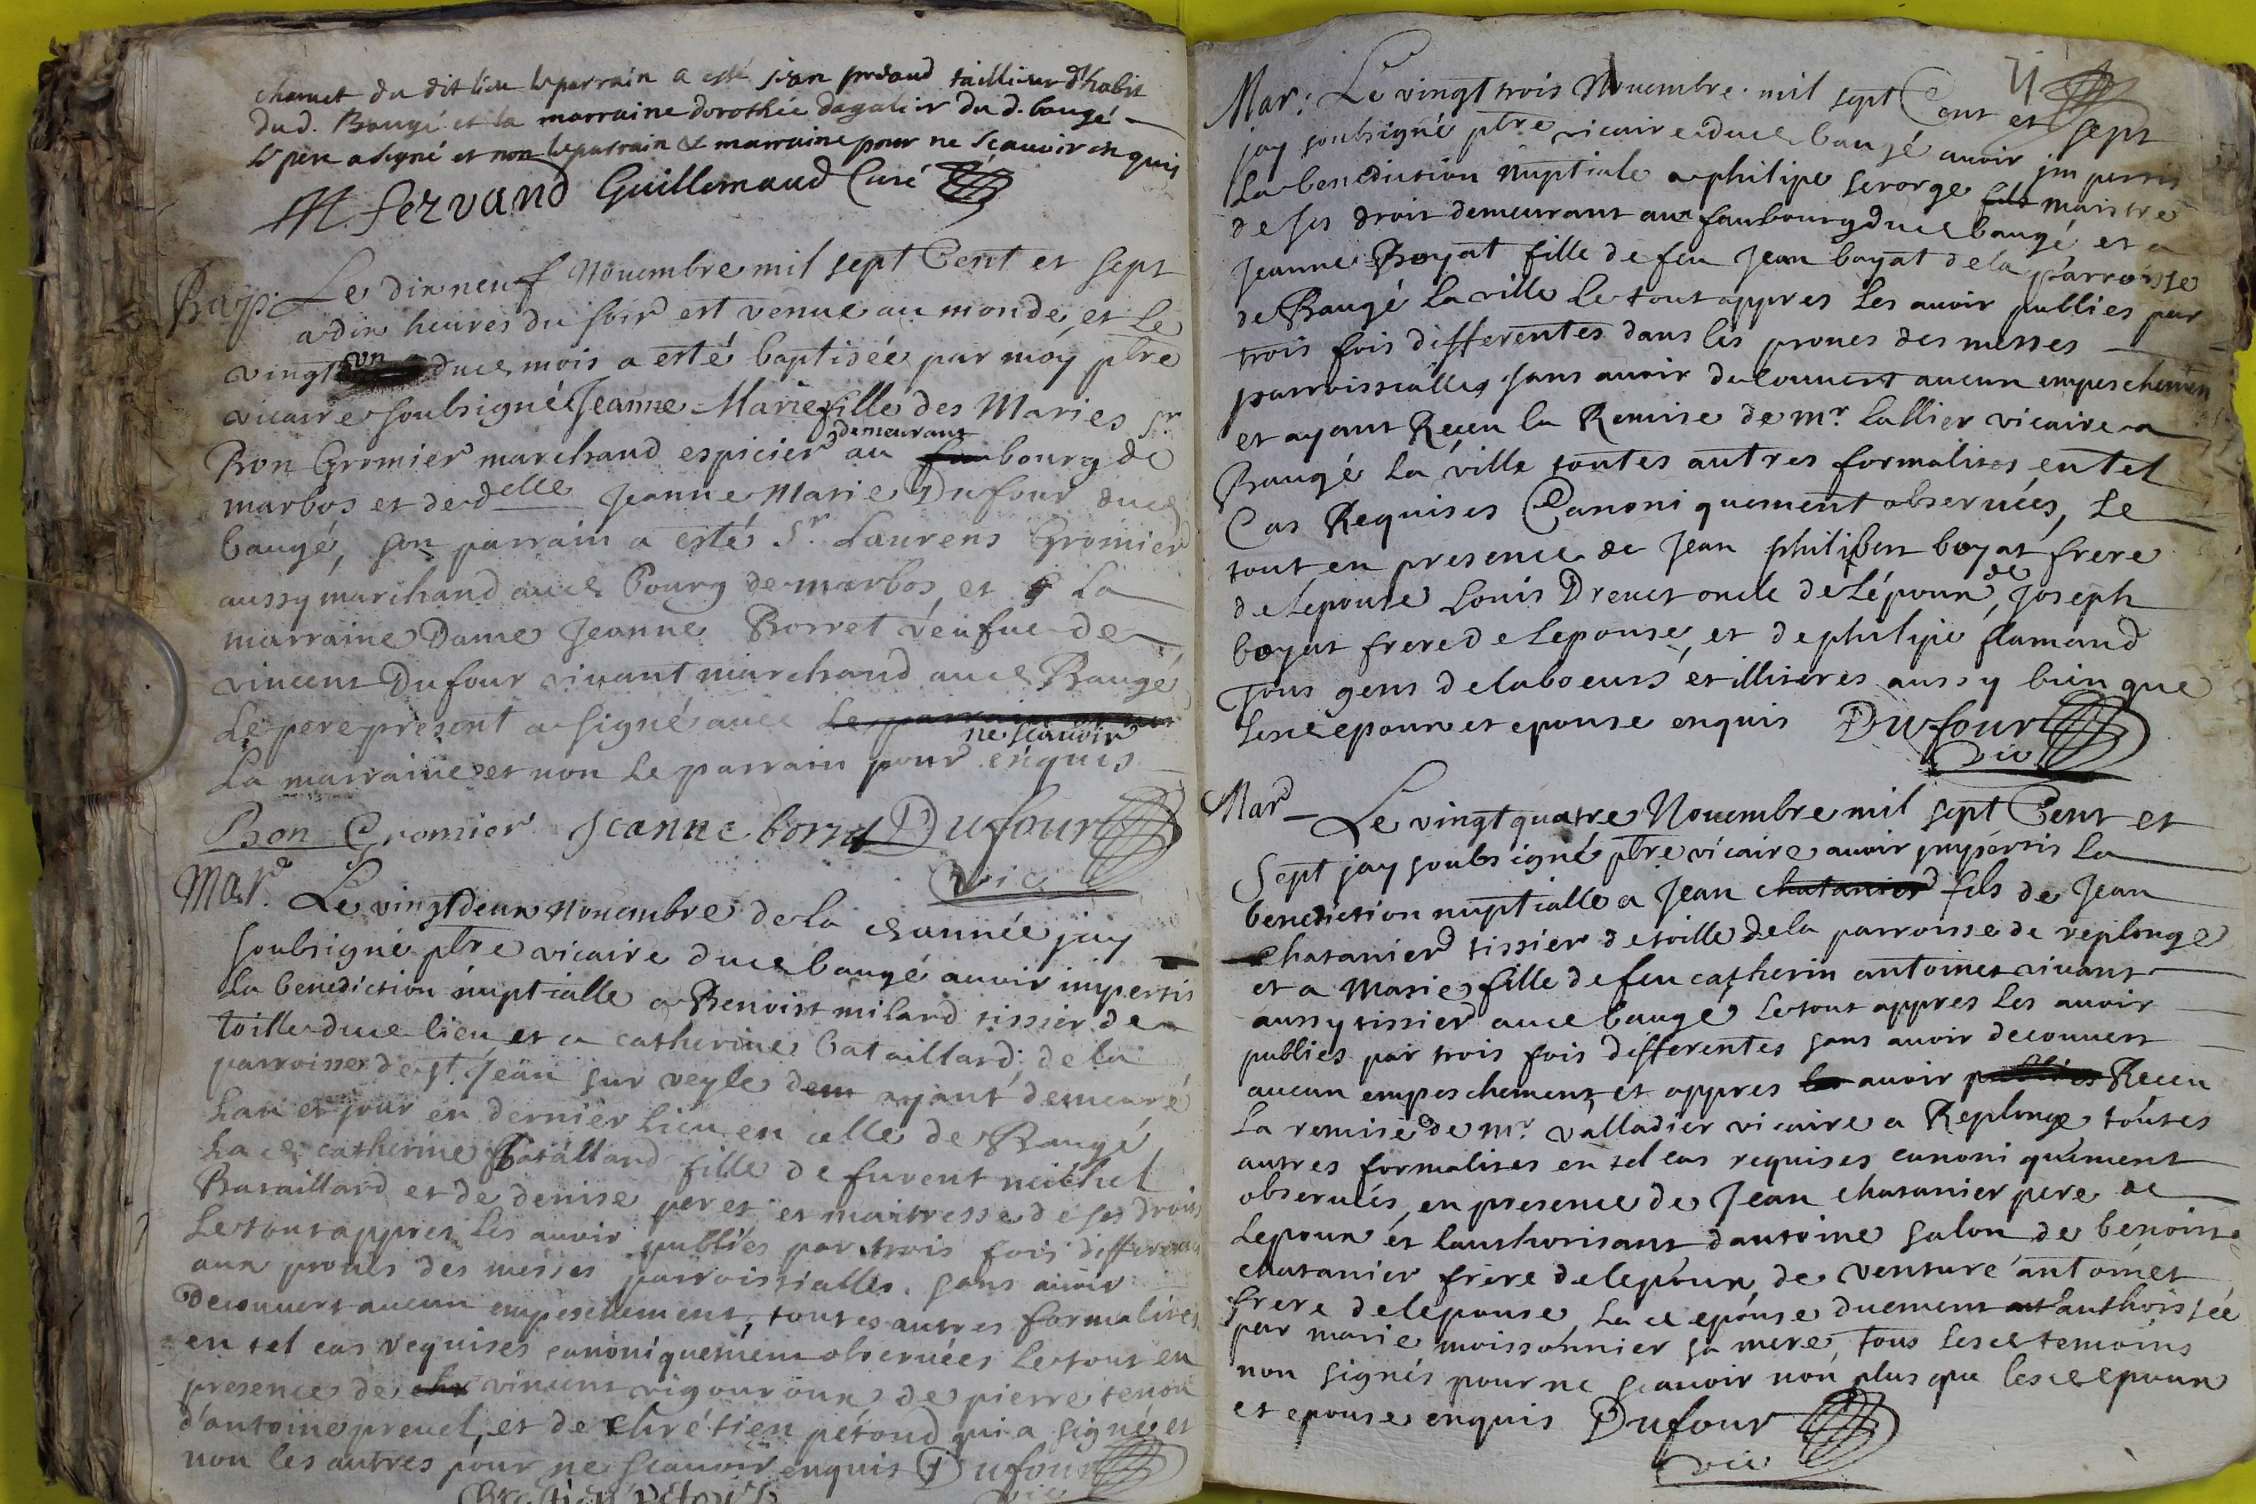 charnet du dit lieu le parrain a esté jean tailleur d'habit
du d. Baugé et la marraine dorothée dagalier du d. baugé
le pere a signé et non le parrain & marraine pour ne scauoir enquis
M fervand Guillemaud Curé
Bap: Le dix neuf Nouembre mil sept Cent et sept
a dix heures du soir est venue au monde, et le
vingt vn duce mois a esté baptisée par moy ptre
vicaire soubsigné Jeanne Marie fille des Maries Sr
Bon Gromier marchand espicier demeurant au bourg de
marbos et de delle Jeanne Marie Dufour duce
baugé, son parrain a esté Sr. Laurens Gromier
aussy marchand auce Bourg de marbos, et La
marraine Dame Jeanne Borret veufue de
vincent Dufour viuant marchand auce Baugé
Le pere present a signé auec le parrain
La marraine et non Le parrain pour ne scauoir enquis
Bon Gromier Jeanne borret Dufour
vic
Mar. Le vingt deux nouembre de la ce année jay
soubsigné ptre vicaire duce baugé auoir imperti
La benediction nuptialle a Benoist milard tissier de
toille duce lieu et a catherine bataillard, de la
parroisse de st. Jean sur veyle dem ayant demeuré
L'an et jour en dernier lieu en celle de Baugé
La ce catherine Batallard fille de furent michel
Bataillard et de denise peret et maitresse de ses droits
Le tout appres les auoir publiés par trois fois differentes
aux prones des messes parroissialles. sans auoir
decouuert aucun empeschement, toutes autres formalites
en tel cas requises canoniquement obseruées Le tout en
presence de vincent vigouroux de pierre tenon
d'antoine preuel, et de chrétien pétoud qui a signé et
non les autres pour ne scauoir enquis Dufour
vic
Mar: Le vingt trois Nouembre mil sept Cent et sept
jay soubsigné ptre vicaire duce baugé auoir imperti
La benediction nuptiale a philipe serorge fils maistre
de ses droit demeurant aux faubourg duce baugé et a
Jeanne Boyat fille de feu Jean boyat de la parroisse
de Baugé la ville Le tout appres Les auoir publies par
trois fois differentes dans les prones des messes
parroissialles sans auoir decouuert aucun empeschement
et ayant Receu la Remise de mr. Lallier vicaire a
Baugé La ville toutes autres formalites en tel
Cas Requises Canoniquement obseruées, Le
tout en presence de Jean philibert boyat frere
de Lepouse Louis Dreuet oncle de Lépoux, de Joseph
boyat frere de Lepouse, et de philipe flamand
Tous gens de labœurs et illitérés aussy bien que
Lesce epoux et epouse enquis Dufour
vic
Mar Le vingt quatre Nouembre mil sept Cent et
Sept jay soubsigné ptre vicaire auoir imperti La
benediction nuptialle a Jean chatanier fils de Jean
Chatanier tissier de toille de la parroisse de replonge
et a Marie fille de feu catherin antoinet viuant
aussy tissier auce baugé Le tout appres Les auoir
publies par trois fois differentes sans auoir decouuert
aucun empeschement et appres les auoir publies Receu
La remise de mr. valladier vicaire a Replonge toutes
autres formalites en tel cas requises canoniquement
obseruées, en presence de Jean chatanier pere de
Lepoux et lauthorisant dantoine salon de benoist
chatanier frere de lepoux, de venture antoinet
frere de lepouse, La ce epouse duement authorisée
par marie moissonnier sa mere, Tous Lesce temoins
non signés pour ne scauoir non plus que lesce epoux
et epouse enquis Dufour
vic